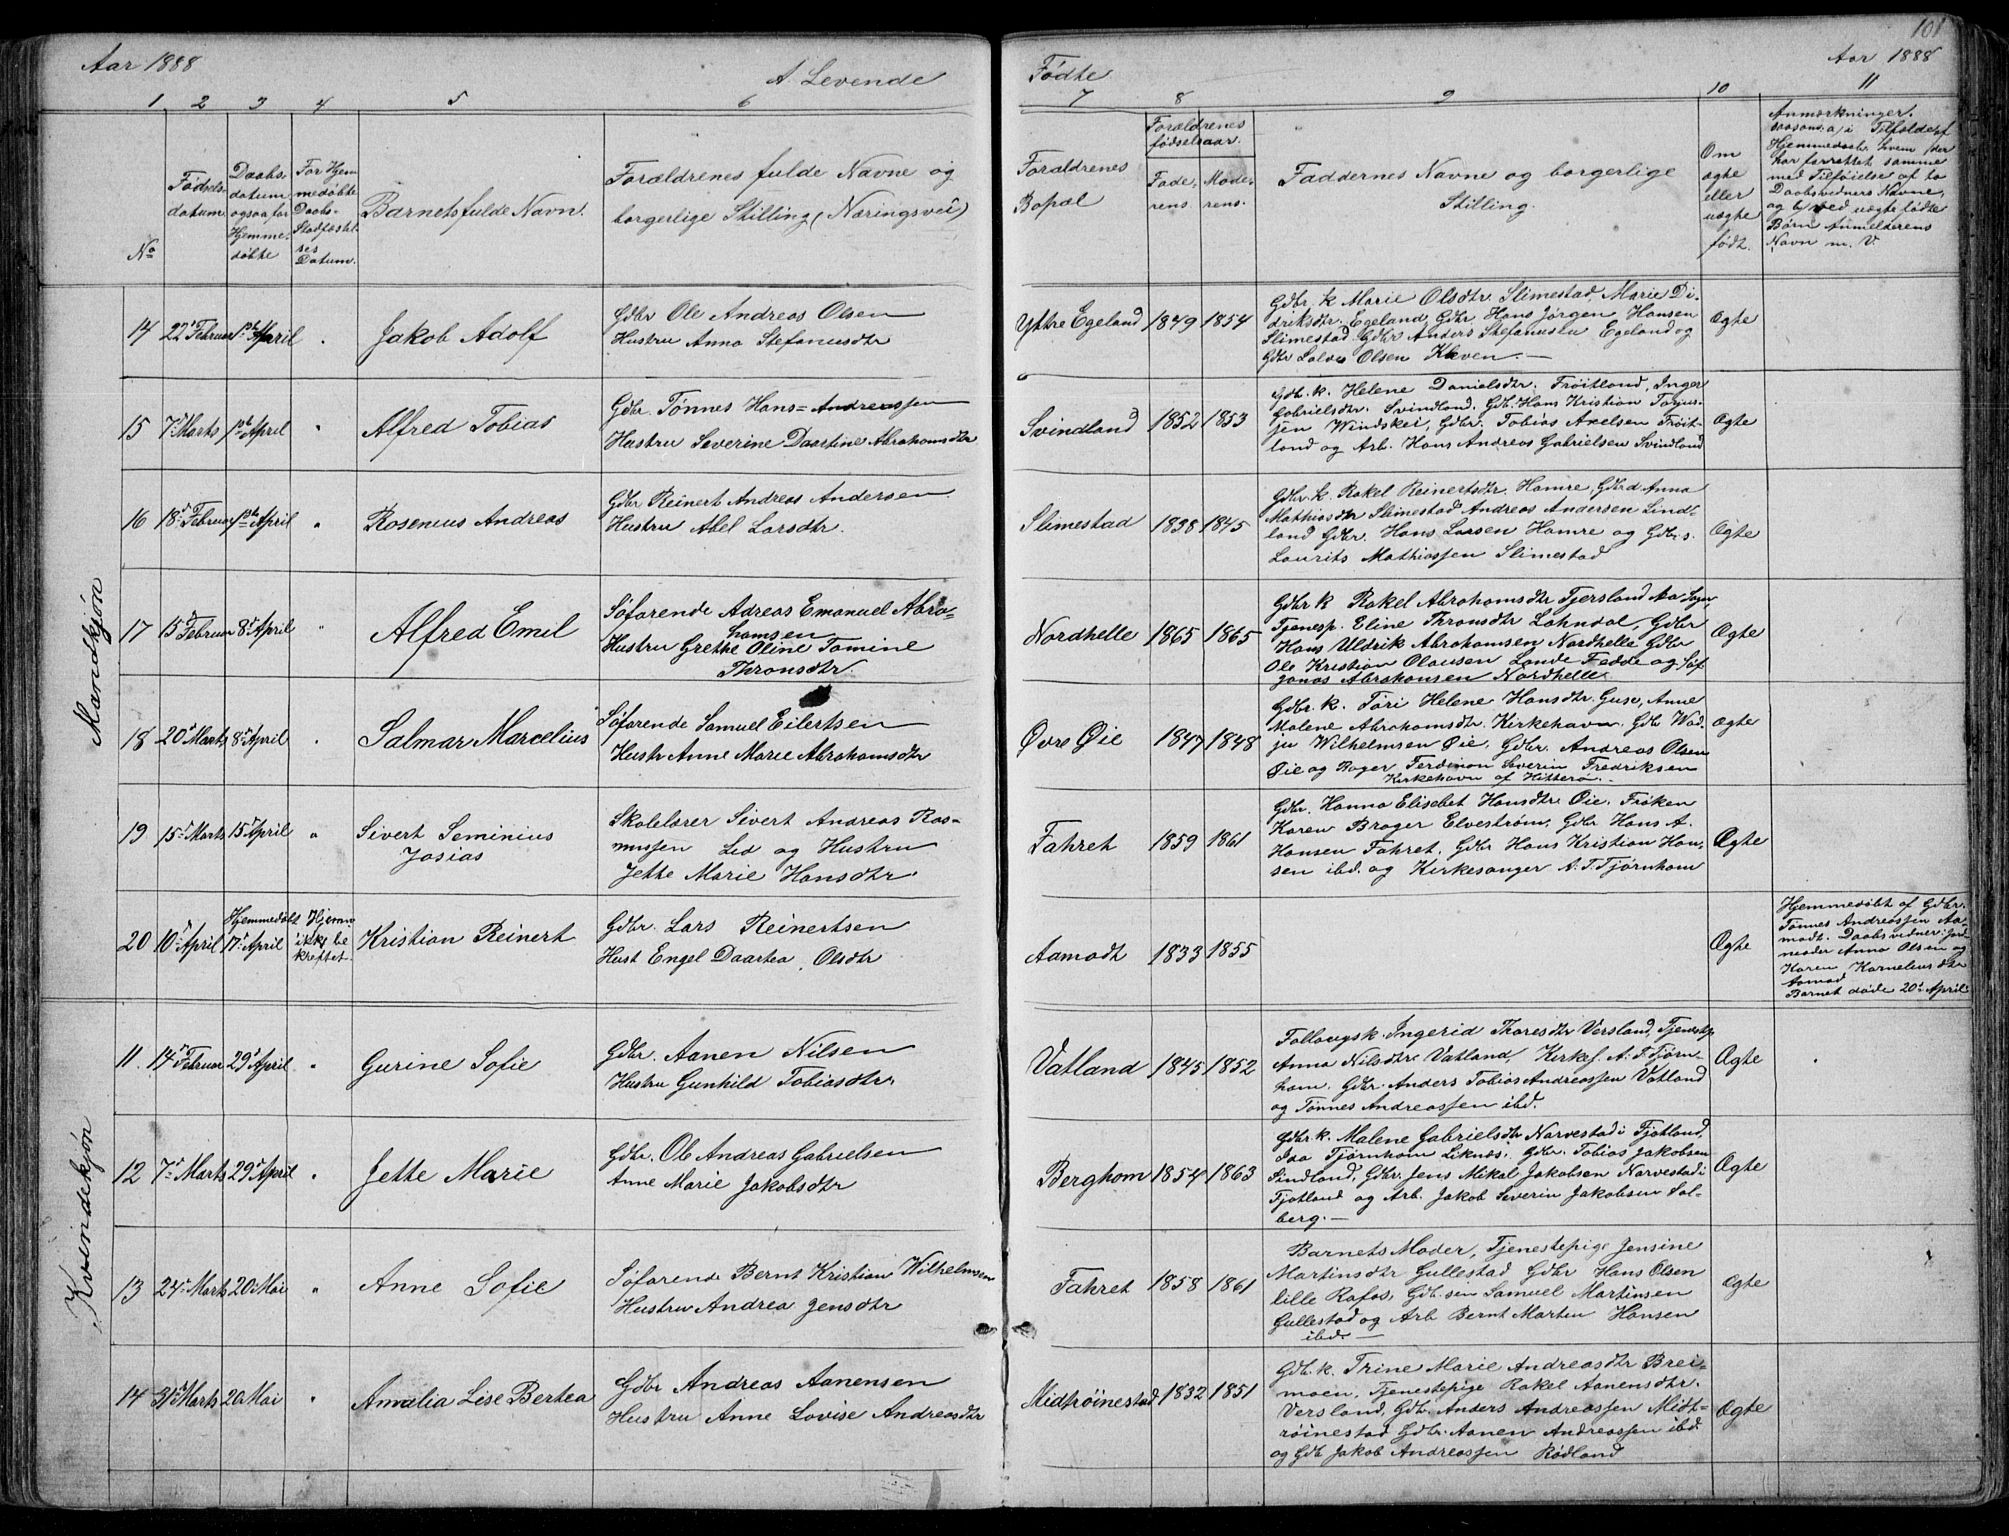 101
Aar 1888
A. Levende
Fødte
Aar 1888
1 2 3 4 5 6 7 8 9 10 11
No
Fødsels-
datum
Daabs-
datum
ogsaa for
Hjemme-
døbte
For Hjem
medøbte
Daabs-
Stadfæstel-
ses
Datum.
Barnets fulde Navn.
Forældrenes fulde Navne og
borgerlige Stilling (Næringsvei)
Forældrenes
Bopæl
Forældrenes
fødselsaar.
Fade-
rens
Mode-
rens.
Faddernes Navne og borgerlige
Stilling.
Om
ægte
eller
uægte
født.
Anmærkninger.
saasom: a) i Tilfælde af
Hjemmedaab: hvem der
har forrettet samme
med Tilføielse af to
Daabsvidners Navne,
og b) ved uægte fødte
Børn Anmelderens
Navn m. V.
Mandkjøn
14 22 Februar 1ste April " Jakob Adolf
Gdbr Ole Andreas Olsen
Hustru Anna Stefanusdtr
Yttre Egeland 1849 1854
Gdbr. k Marie Olsdtr. Slimestad, Marie Di-
driksdtr. Egeland Gdbr. Hans Jörgen Hansen
Slimestad. Gdbr Anders Stefanussen Egeland og
Gdbr Salve Olsen Kleven. —
Ægte
15 7 Marts 1ste April " Alfred Tobias
Gdbr. Tønnes Hans=Andreassen
Hustru Severine Daartine Abrahamsdtr
Svindland 1852 1853
Gdb. k. Helene Danielsdtr. Frøitland, Inger
Gabrielsdtr. Svindland. Gdb. Hans Kristian Tarjus-
sen Windskei, Gdbr. Tobias Axelsen Frøit-
land og Arb. Hans Andreas Gabrielsen Svindland
Ægte
16 18 Februar 1ste April " Rosenius Andreas
Gdbr Reinert Andreas Andersen
Hustru Abel Larsdtr.
Slimestad 1838 1845
Gdbr. k. Rakel Reinertsdtr. Hamre, Gdbrd. Anna
Mathiasdtr Slimestad Andreas Andersen Lind-
land Gdbr. Hans Larsen Hamre og Gdbr. s.
Laurits Mathiassen Slimestad
Ægte
17 15 Februar 8 April " Alfred Emil
Søfarende Adreas Emanuel Abra-
hamsen
Hustru Grethe Oline Tomine
Thronsdtr.
Nordhelle 1865 1865
Gdbr k Rakel Abrahamsdtr Fjersland Aa Sogn,
Tjenesp. Eline Thronsdtr Løhndal, Gdbr
Hans Uldrik Abrahamsen Nordhelle Gdbr
Ole Kristian Olausen Lande Fedde og Søf.
Jonas Abrahamsen Nordhelle.
Ægte
18 20 Marts 8 April " Salmar Marcelius
Søfarende Samuel Eilertsen
Hustr Anne Marie Abrahamsdtr
Øvre Øie 1847 1848
Gdbr. k. Tøri Helene Hansdtr. Guse, Anne
Malene Abrahamsdtr. Kirkehavn. Gdb Wad-
ju Wilhelmsen Øie, Gdbr. Andreas Olsen
Øie og Bager Ferdinan Severin Fredriksen
Kirkehavn af Hitterø. —
ægte
19 15 Marts 15 April " Sivert Seminius
Josias
Skolelærer Sivert Andreas Ras-
mussen Lid og Hustru
Jette Marie Hansdtr.
Fahret 1859 1861
Gdbr. Hanna Elisebet Hansdtr. Øie. Frøken
Karen Brager Elvestrøm, Gdbr Hans A.
Hansen Fahret. Gdbr Hans Kristian Han-
sen ibd. og Kirkesanger A. T. Tjørnhom
Ægte
20 10 April Hjemmedøbt
17 April
Hjemd
ikke be
kræftet.
Kristian Reinert
Gdbr. Lars Reinertsen
Hust Engel Daartea Olsdtr
Aamodt 1833 1855
Ægte
Hjemmedøbt af Gdbr.
Tønnes Andreassen Aa-
modt. Daabsvidner: Jord-
moder Anna Olsen og
Karen Korneliusdtr
Aamod
Barnet døde 20 April
Kvindekjøn
11. 14 Februar 29 April " Gurine Sofie
Gdbr. Aanen Nilsen
Hustru Gunhild Tobiasdtr.
Vatland 1845 1852
Follaugsk. Ingerid Tharesdtr Versland, Tjenestp
Anna Nilsdtr Vatland, Kirkes. A. T. Tjørn-
hom. Gdbr. Anders Tobias Andreassen Vatland
og Tønnes Andreassen ibd.
Ægte
12 7 Marts 29 April " Jette Marie
Gdbr. Ole Andreas Gabrielsen
Anne Marie Jakobsdtr
Berghom 1854 1863
Gdbr. k. Malene Gabrielsdtr Narvestad i Fjotland,
Ida Tjørnhom Liknes, Gdbr. Tobias Jakobsen
Sindland, Gdbr. Jens Mikal Jakobsen Narvestad i
Fjotland og Arb. Jakob Severin Jakobsen Sol-
berg. —
Ægte
13 24 Marts 20 Mai " Anne Sofie
Søfarende Bernt Kristian Wilhelmsen
Hustru Andrea Jensdtr
Fahret 1858 1861
Barnets Moder, Tjenestepige Jensine
Martinsdtr Gullestad Gdbr Hans Olsen
lille Rafos, Gdb. søn Samuel Martinsen
Gullestad og Arb Bernt Marten Hansen
ibd. —
Ægte
14 31 Marts 20 Mai " Amalia Lise Bertea
Gdbr Andreas Aanensen
Hustru Anne Lovise Andreasdtr
Midtrøinestad 1832 1851
Gdb. k. Trine Marie Andreasdtr Brei-
moen, Tjenestepige Rakel Aanensdtr.
Versland, Gdb. Anders Andreassen Midt-
røinestad Gdbr. Aanen Andreassen ibd
og Gdb Jakob Andreassen Rødland
Ægte